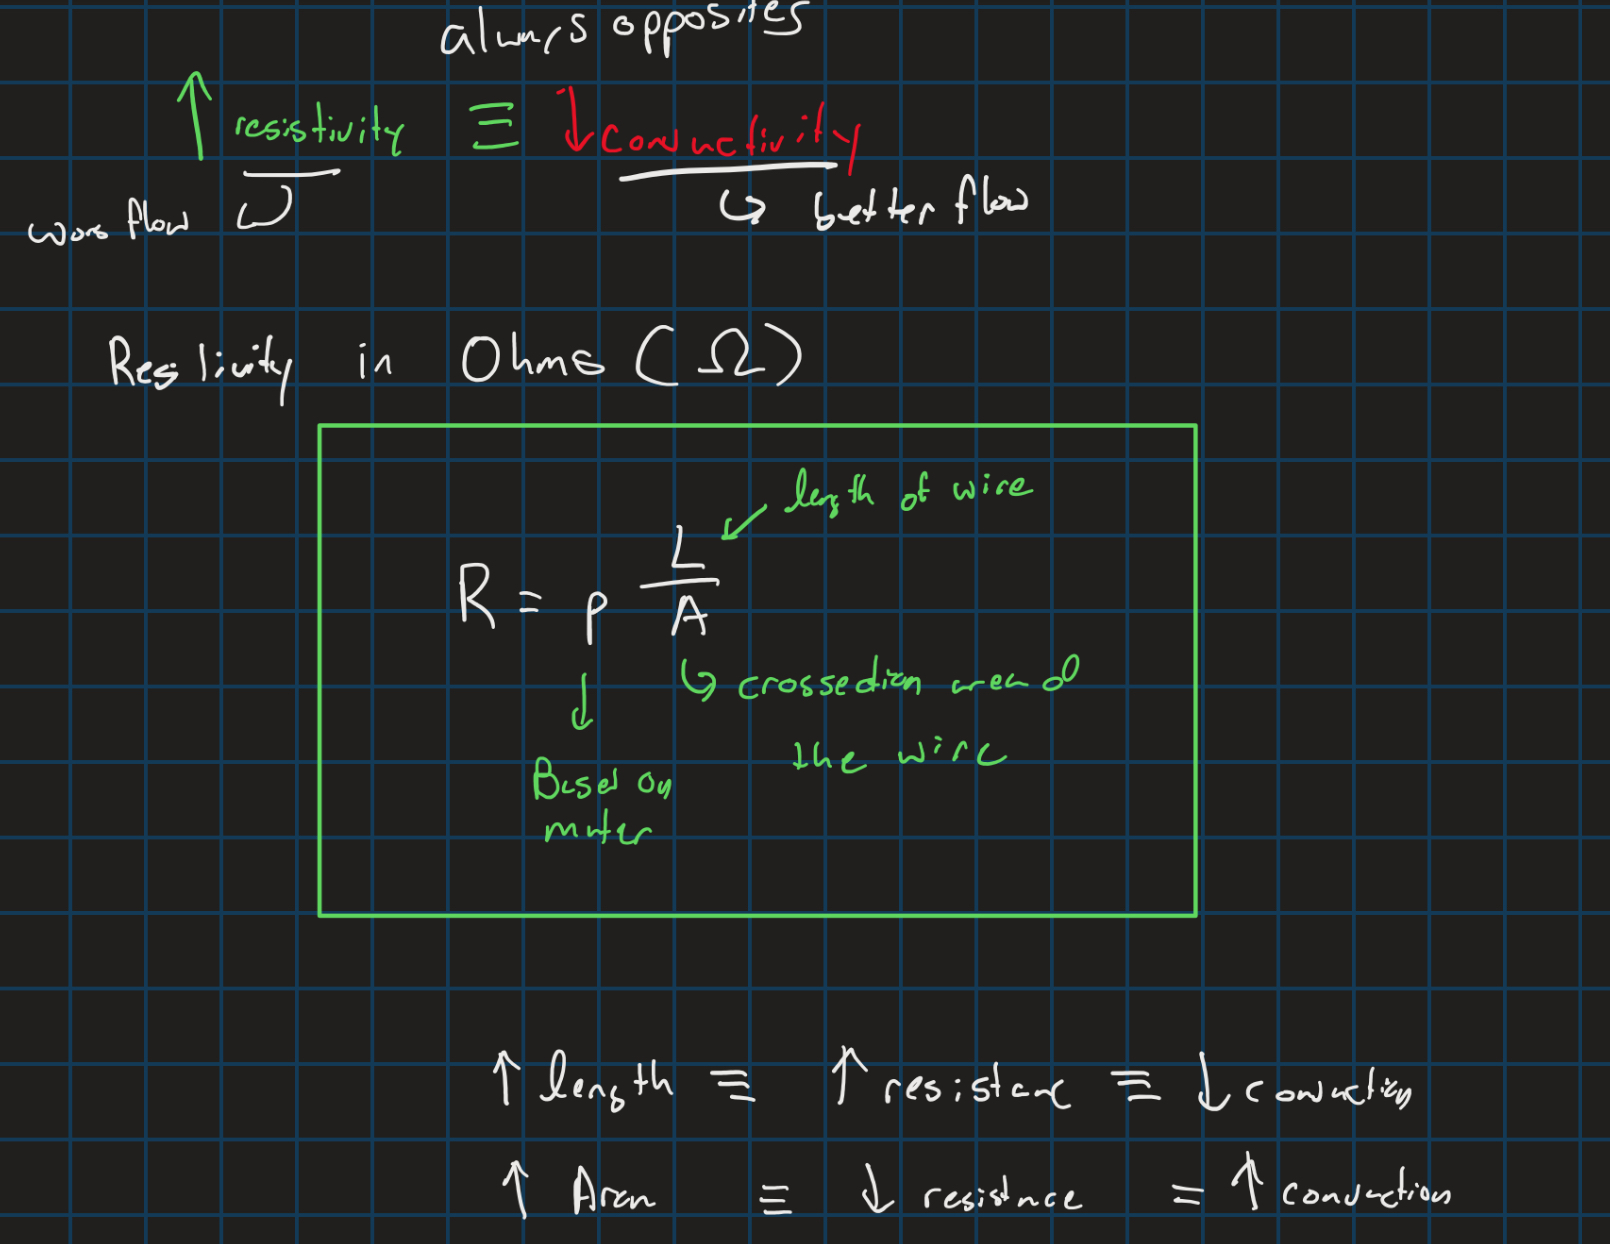 always opposites
↑ resistivity ≡ ↓ conductivity
wors flow ↪ better flow
Resitivity in Ohms (Ω)
length of wire
R = ρ L/A
↳ crossection area of
the wire
Based on
mater
↑ length ≡ ↑ resistanc ≡ ↓ conduction
↑ Area ≡ ↓ resistnce = ↑ conduction